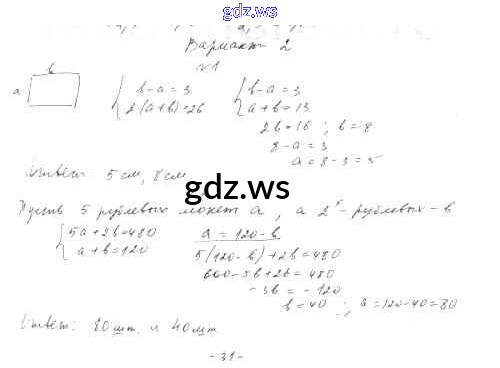 gdz.ws
Вариант 2
№1
b
a
b-a=3
2(a+b)=26
b-a=3
a+b=13
2b=16 ; b=8
8-a=3
a=8-3=5
Ответ: 5 см, 8 см
gdz.ws
Пусть 5 рублевых монет a, а 2х-рублевых - b
5a+2b=480
a+b=120
a=120-b
5(120-b)+2b=480
600-5b+2b=480
-3b=-120
b=40 ; a=120-40=80
Ответ: 80шт. и 40шт
-31-
gdz.ws